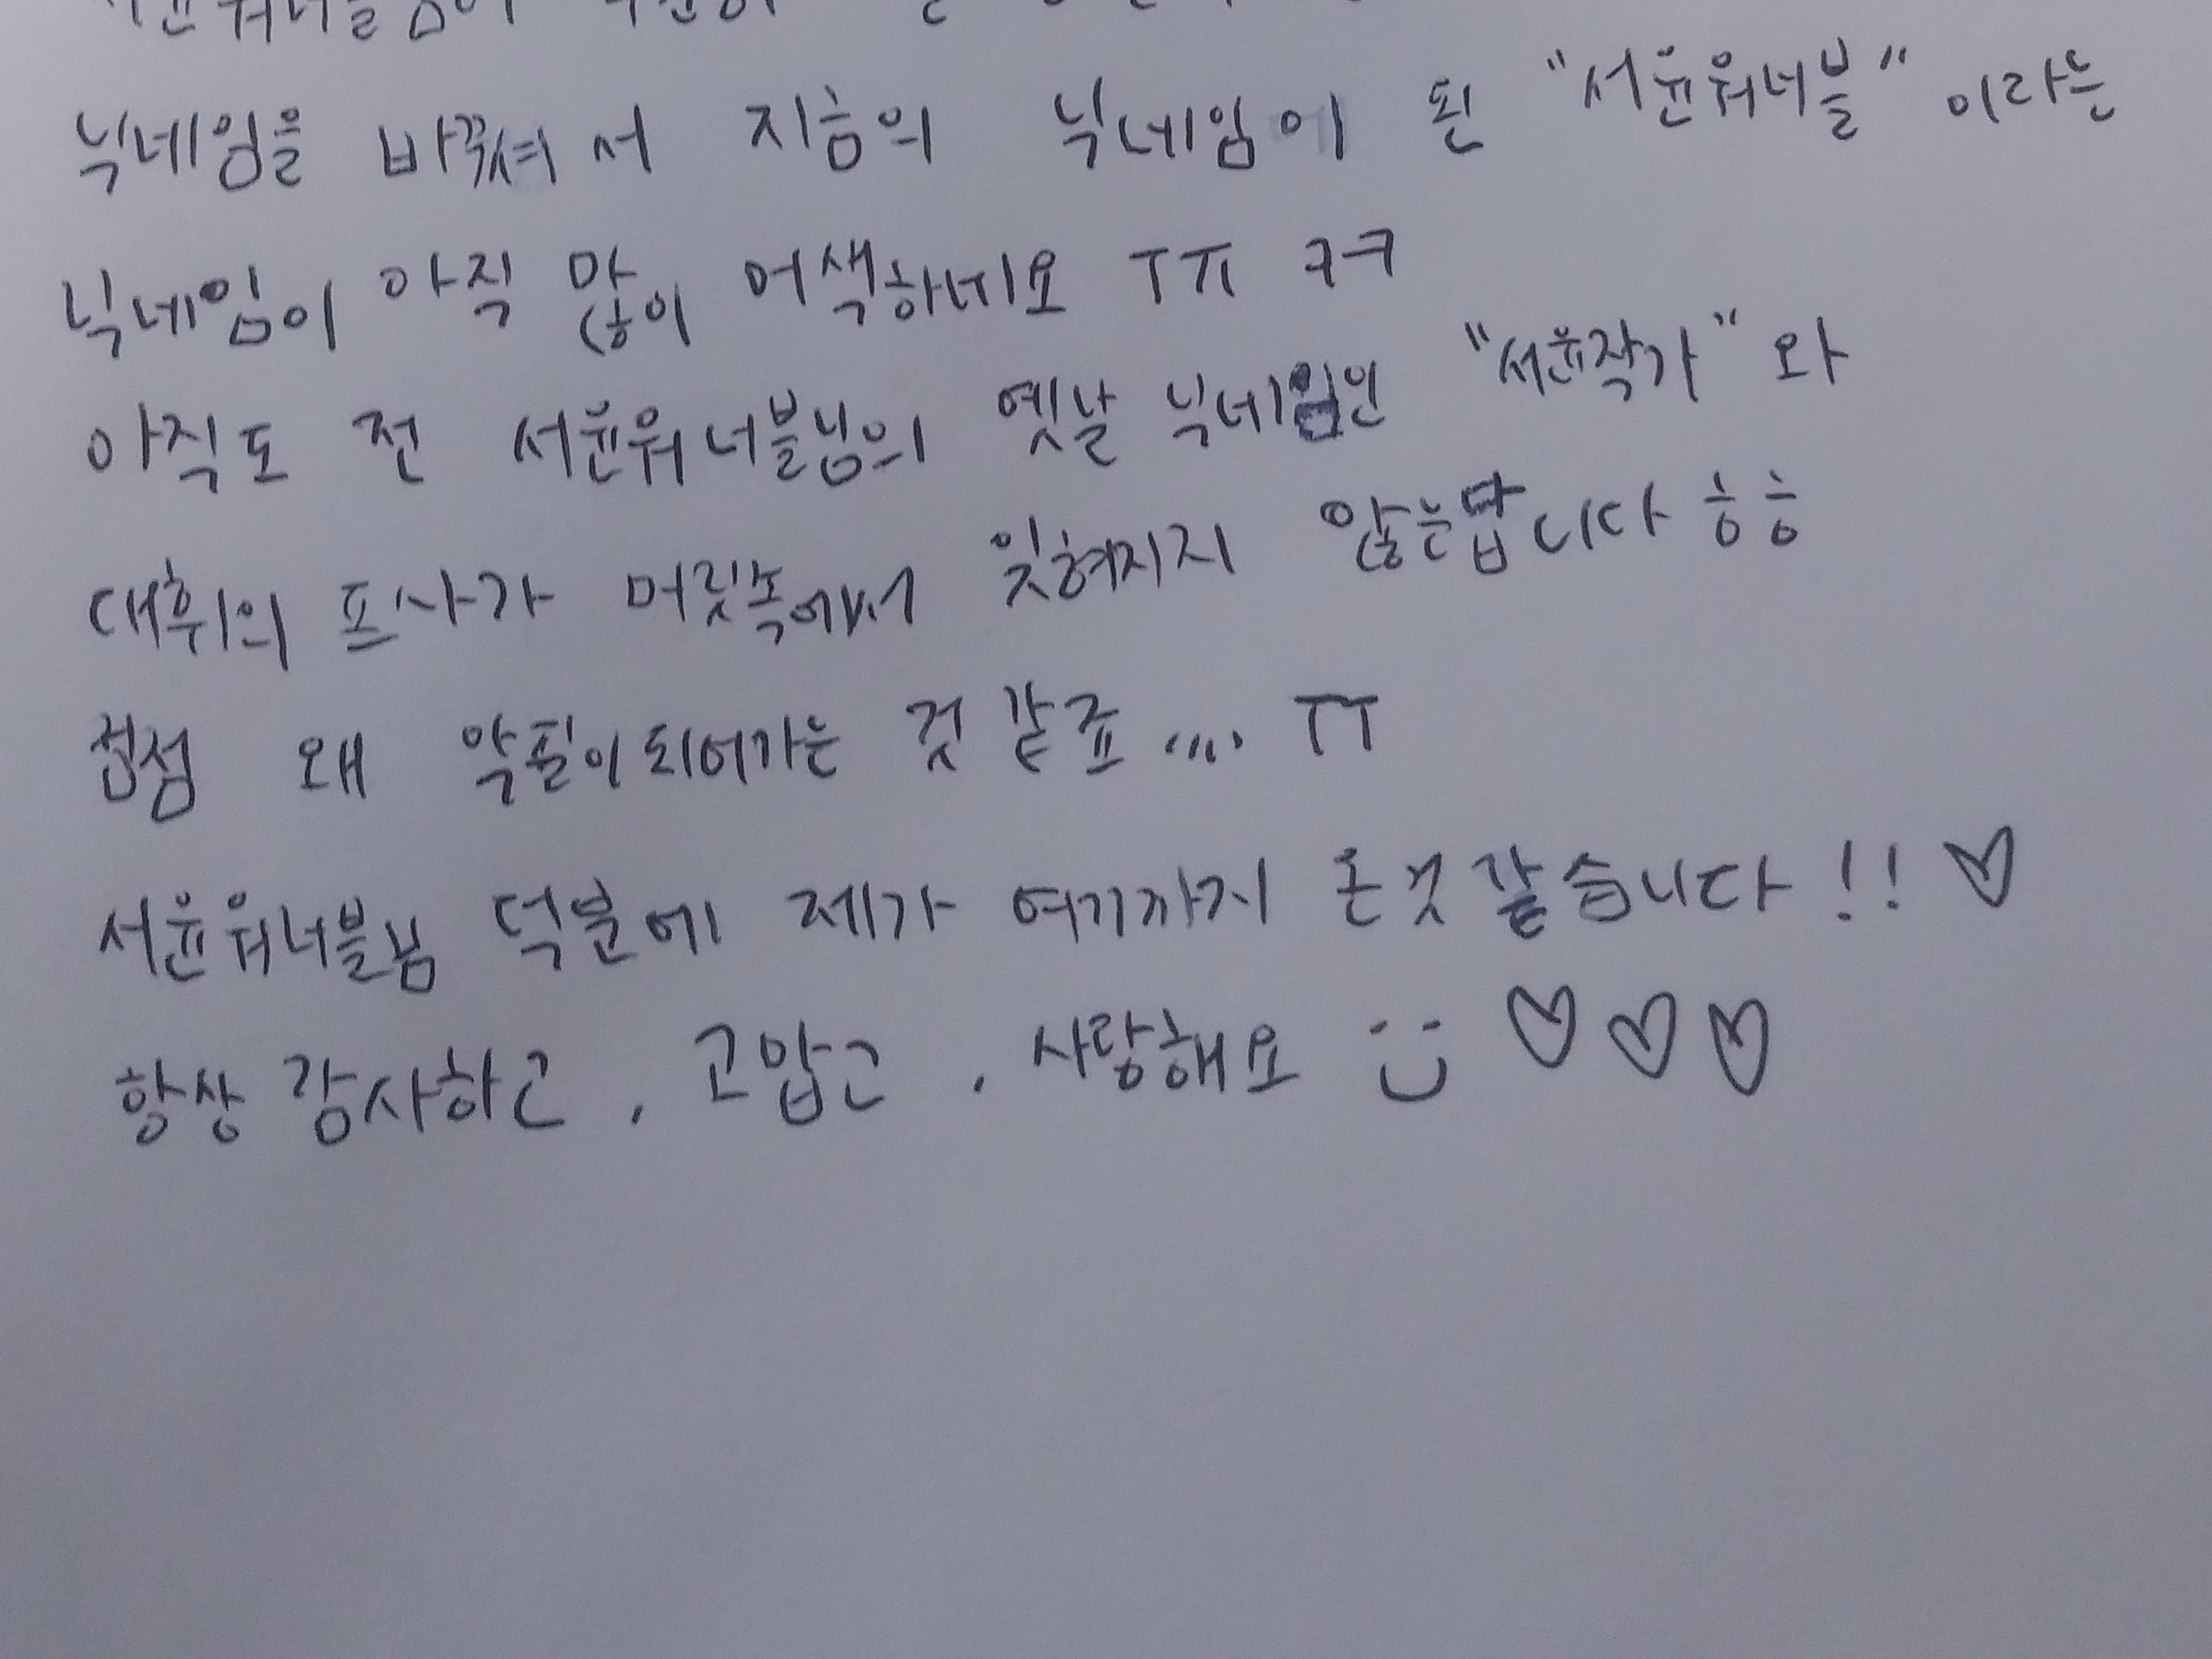 닉네임을 바꾸셔서 지금의 닉네임이 된 "서윤워너블" 이라는
닉네임이 아직 많이 어색하네요 ㅜㅠ ㅋㅋ
아직도 전 서윤워너블님의 옛날 닉네임인 "서윤작가" 와
대휘의 프사가 머릿속에서 잊혀지지 않는답니다 ㅎㅎ
점점 왜 악필이 되어가는 것 같죠.... ㅜㅜ
서윤워너블님 덕분에 제가 여기까지 온것 같습니다!! ♡
항상 감사하고, 고맙고, 사랑해요 :) ♡♡♡